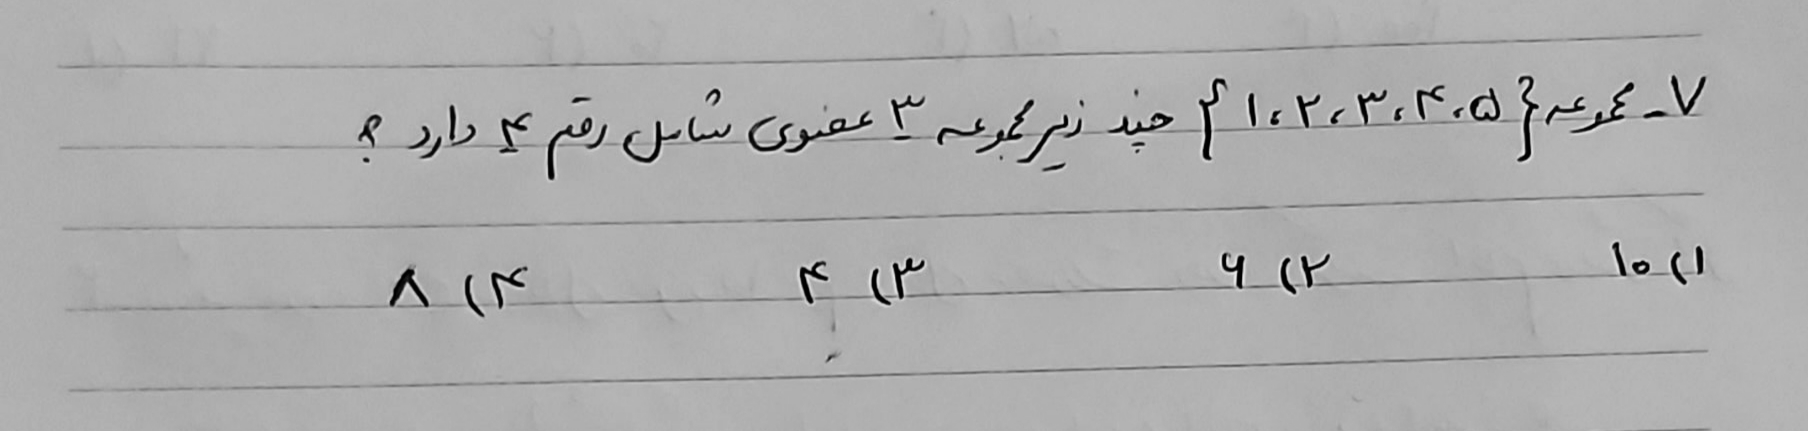 ۷_ مجموعه {۱،۲،۳،۴،۵} چند زیر مجموعه ۳ عضوی شامل رقم ۴ دارد ؟
۱) ۱۰ ۲) ۶ ۳) ۴ ۴) ۸